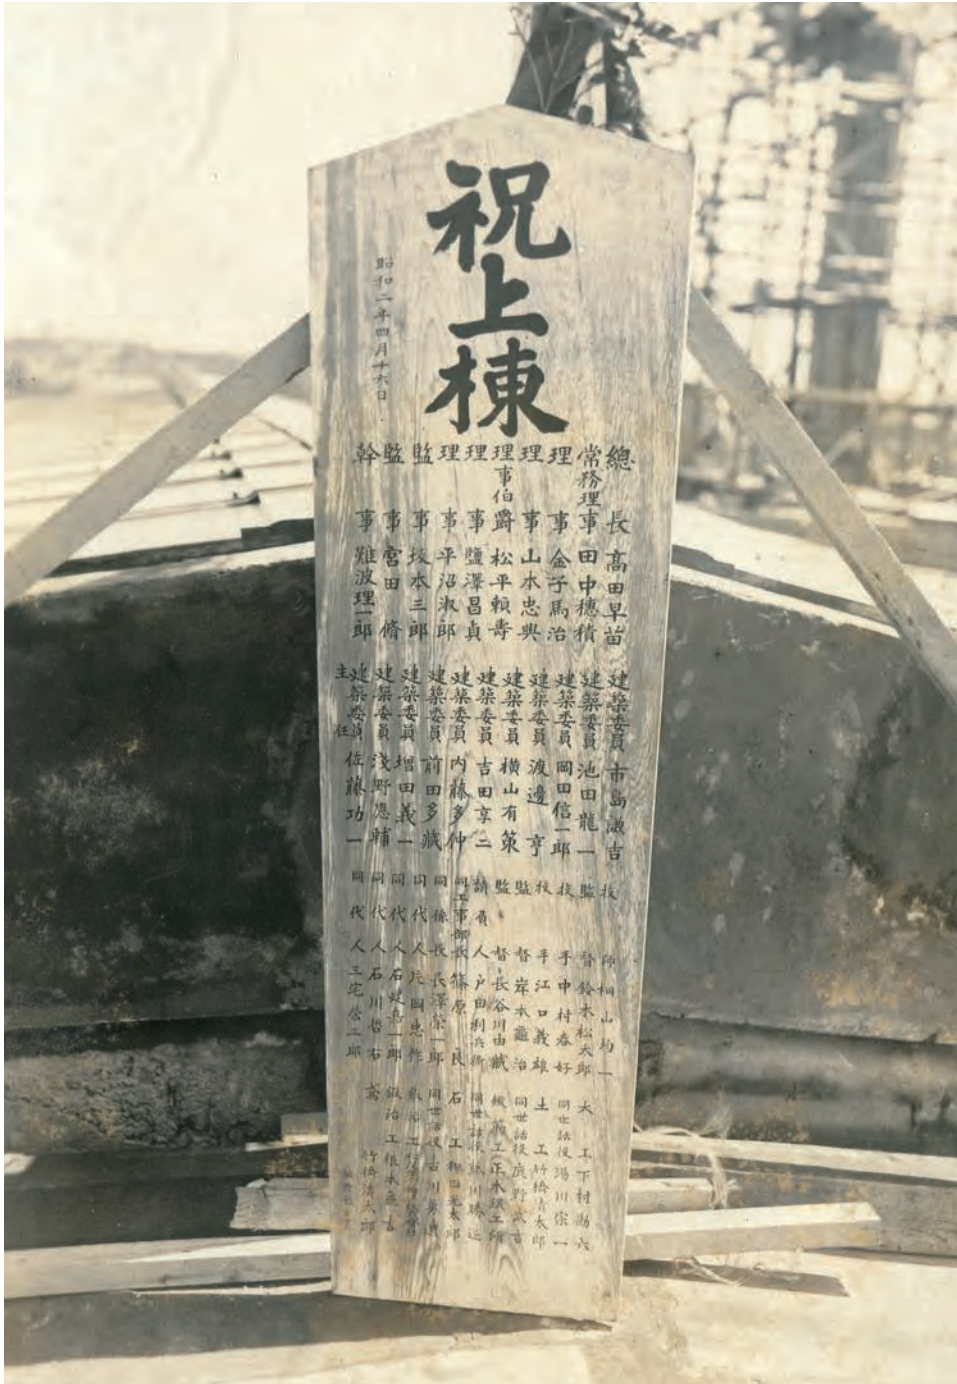 祝上棟
昭和二年四月十六日
總長 高田早苗
常務理事 田中穂積
理事 金子馬治
理事 山本忠興
理事伯爵 松平頼壽
理事 鹽澤昌貞
理事 平沼淑郎
監事 坂本三郎
監事 宮田脩
幹事 難波理一郎
建築委員 市島謙吉
建築委員 池田龍一
建築委員 岡田信一郎
建築委員 渡邊亨
建築委員 横山有策
建築委員 吉田享二
建築委員 内藤多仲
建築委員 前田多蔵
建築委員 増田義一
建築委員 淺野應輔
建築委員主任 佐藤功一
技師 桐山均一
監督 鈴木松太郎
技手 中村春好
技手 江口義雄
監督 岸本龜治
監督 長谷川由蔵
請負人 戸田利兵衛
同工事部長 篠原
同係長 長澤榮一郎
同代人 片岡忠作
同代人 石
同代人 石川哲右
同代人 三宅榮二郎
大工 下村勘六
同世話役 湯川宗一
土工 竹橋清太郎
同世話役 庭野武吉
鐵筋工 正木鐵工所
同世話役
石工
同世話役 古川
鍛冶工 根本
鳶 竹橋清太郎